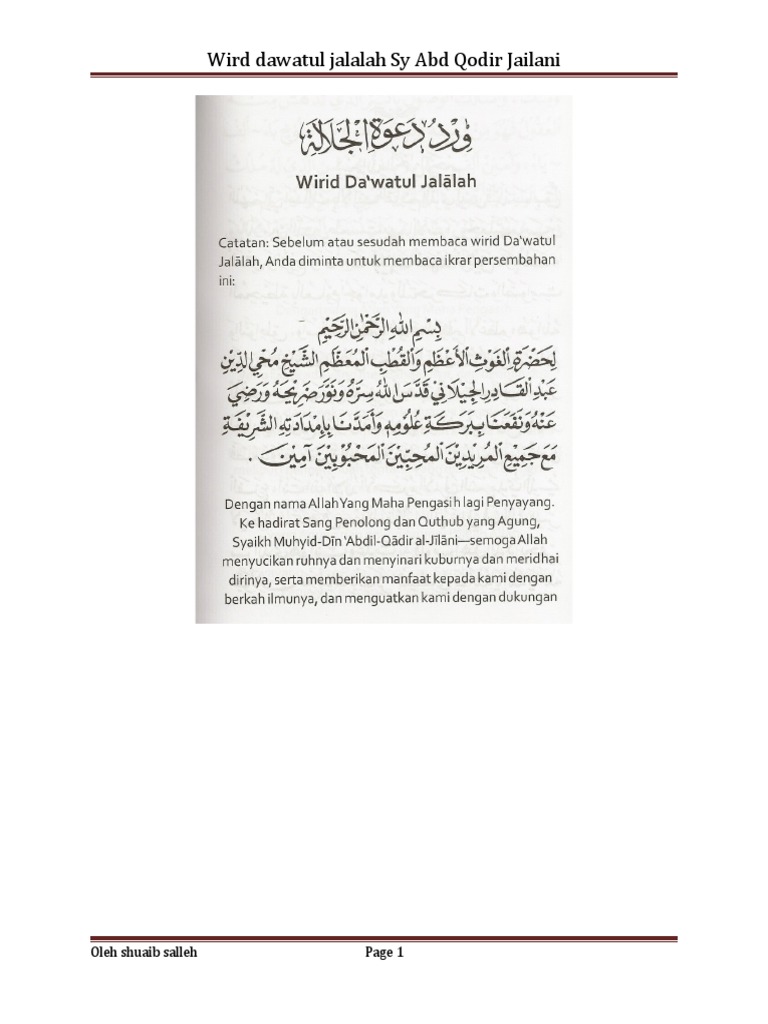 Wird dawatul jalalah Sy Abd Qodir Jailani
وِرْدُ دَعْوَةِ الْجَلَالَةِ
Wirid Da'watul Jalālah
Catatan: Sebelum atau sesudah membaca wirid Da'watul
Jalālah, Anda diminta untuk membaca ikrar persembahan
ini:
بِسْمِ اللهِ الرَّحْمٰنِ الرَّحِيْمِ
لِحَضْرَةِ الْغَوْثِ الْأَعْظَمِ وَالْقُطْبِ الْمُعَظَّمِ الشَّيْخِ مُحْيِ الدِّيْنِ
عَبْدِ الْقَادِرِ الْجِيْلَانِيْ قَدَّسَ اللهُ سِرَّهُ وَنَوَّرَ ضَرِيْحَهُ وَرَضِيَ
عَنْهُ وَنَفَعَنَا بِبَرَكَةِ عُلُوْمِهِ وَأَمَدَّنَا بِإِمْدَادَتِهِ الشَّرِيْفَةِ
مَعَ جَمِيْعِ الْمُرِيْدِيْنَ الْمُحِبِّيْنَ الْمَحْبُوْبِيْنَ آمِيْنَ .
Dengan nama Allah Yang Maha Pengasih lagi Penyayang.
Ke hadirat Sang Penolong dan Quthub yang Agung,
Syaikh Muhyid-Dīn 'Abdil-Qādir al-Jīlāni—semoga Allah
menyucikan ruhnya dan menyinari kuburnya dan meridhai
dirinya, serta memberikan manfaat kepada kami dengan
berkah ilmunya, dan menguatkan kami dengan dukungan
Oleh shuaib salleh Page 1